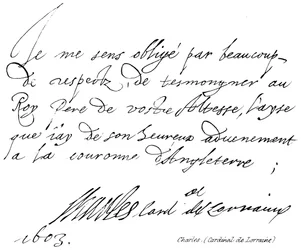 Je me sens obligé par beaucoup
de respectz, de tesmongner au
Roy Pere de vostre Altesse, l'ayse
que j'ay de son heureux aduenement
a la couronne d'Angleterre ;
Charles Card al de Lorraine
1603.
Charles. (Cardinal de Lorraine)